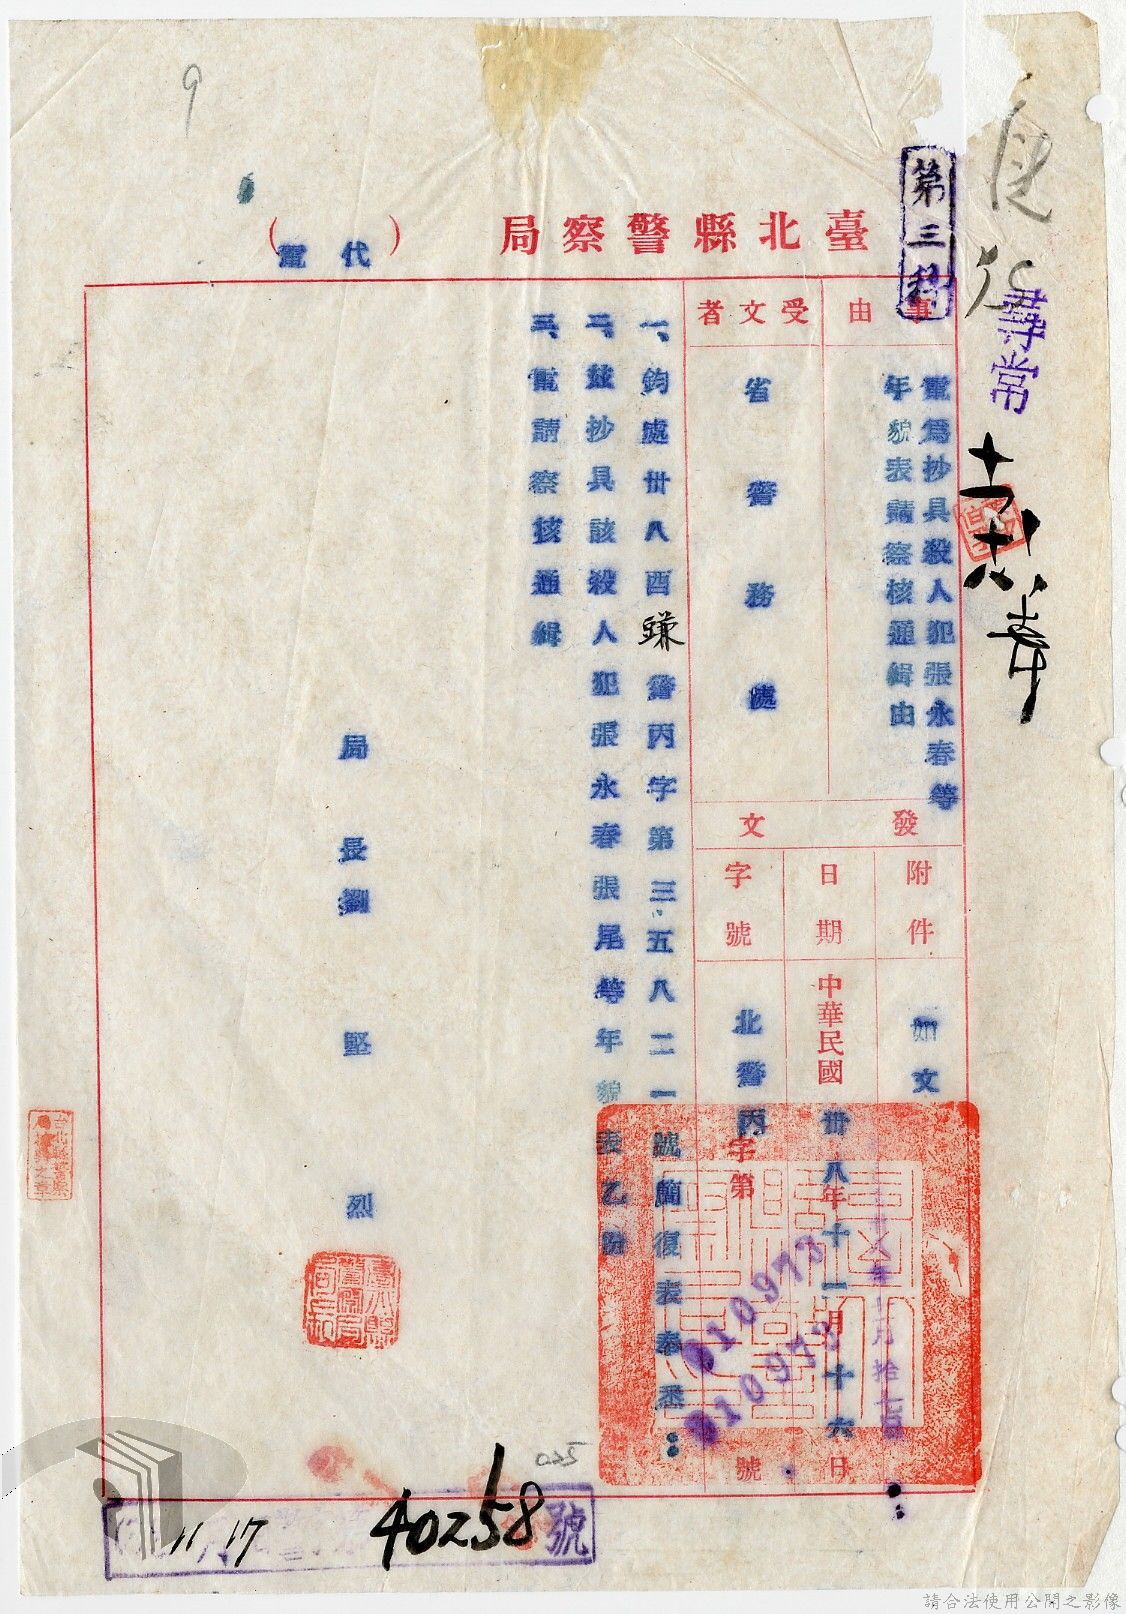 9
臺北縣警察局
（代電）
第三科
尋常
事由
電為抄具殺人犯張永春等
年貌表請察核通緝由
受文者
省警務處
發文
附件
如文
日期
中華民國卅八年十一月十六日
字號
北警丙字第
號
010973
010973
一、鈞處卅八酉警丙字第三五八二一號簡復表奉悉：
二、玆抄具該殺人犯張永春張尾等年貌表乙份
三、電請察核通緝
局長劉堅烈
025
11 17
40258
號
請合法使用公開之影像